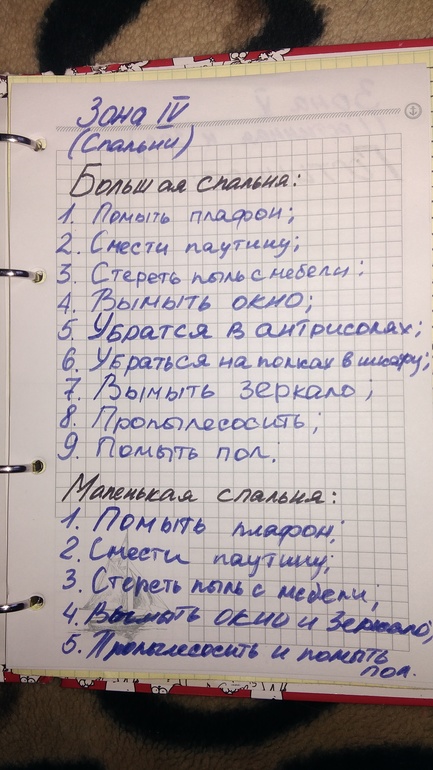 Зона IV
(Спальни)
Большая спальня:
1. Помыть плафон;
2. Смести паутину;
3. Стереть пыль с мебели;
4. Вымыть окно;
5. Убратся в антрисолях;
6. Убраться на полках в шкафу;
7. Вымыть зеркало;
8. Пропылесосить;
9. Помыть пол.
Маленькая спальня:
1. Помыть плафон;
2. Смести паутину;
3. Стереть пыль с мебели;
4. Вымыть окно и зеркало;
5. Пропылесосить и помыть
пол.